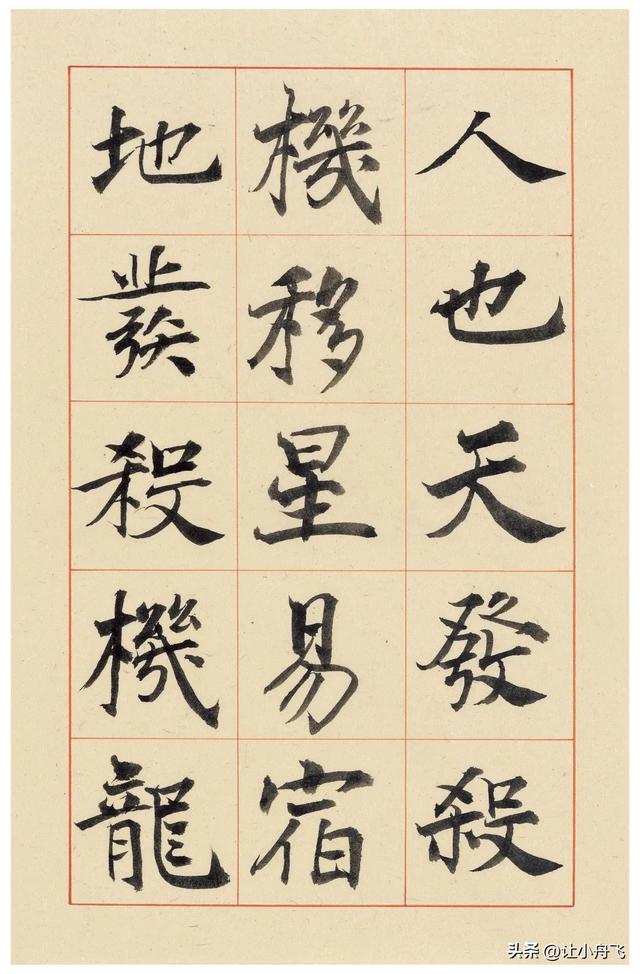 人也天發殺
機移星易宿
地發殺機龍
头条 @让小舟飞